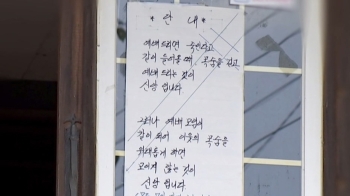 * 안 내 *
예배 드리면 죽인다고
칼이 들어올 때, 목숨을 걸고
예배 드리는 것이
신앙 입니다.
그러나 예배 모임이
칼이 되어 이웃의 목숨을
위태롭게 하면
모이지 않는 것이
신앙 입니다